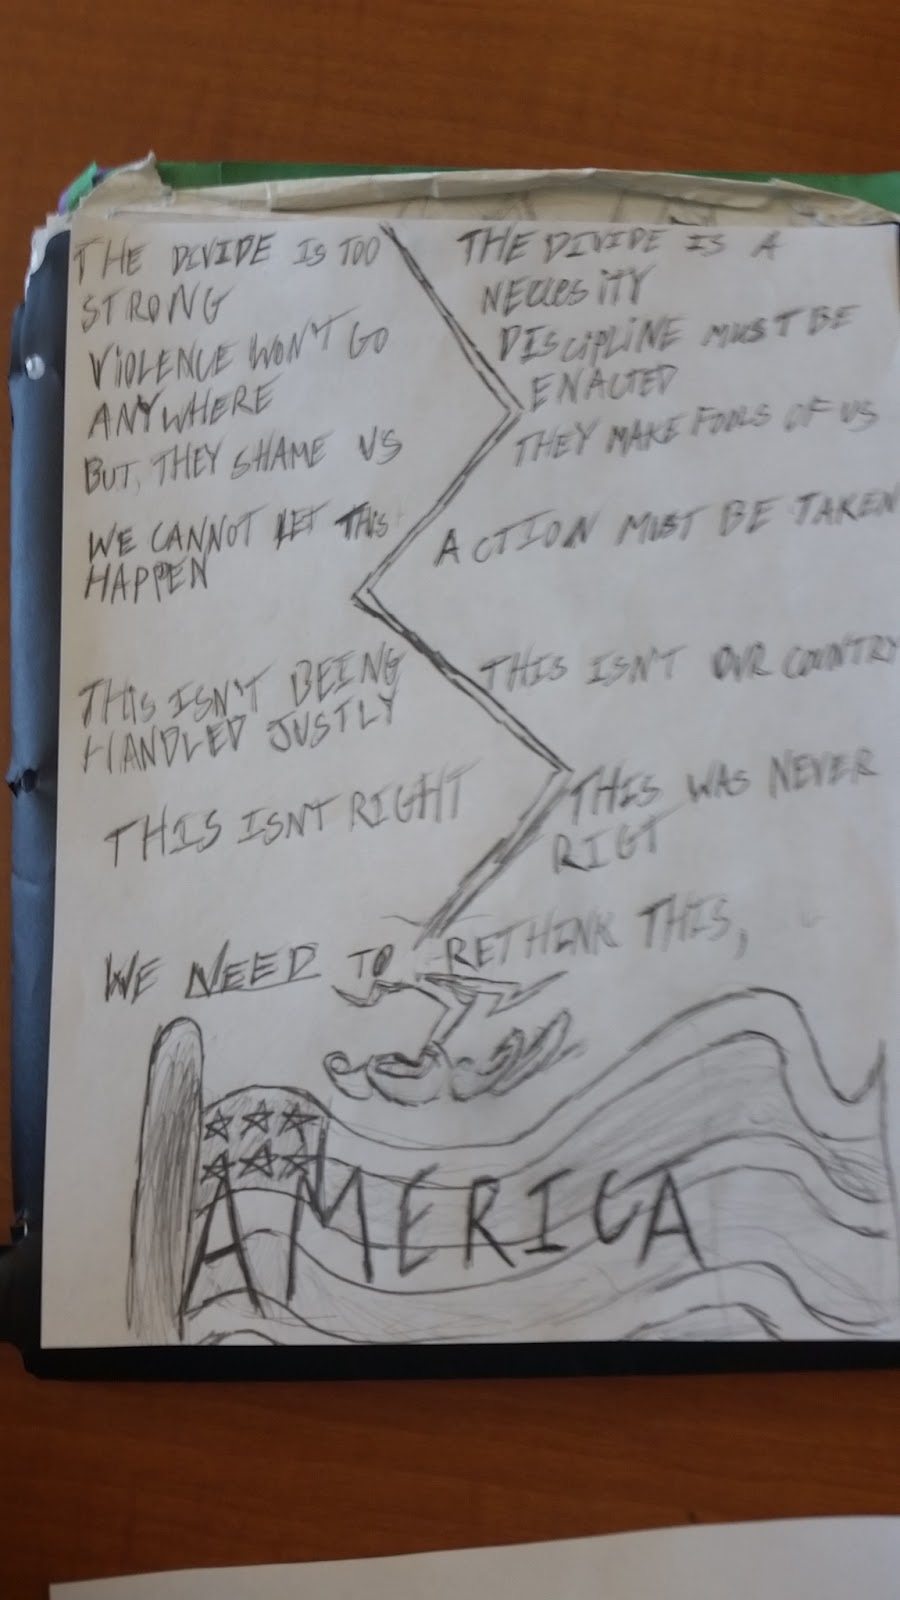 THE DIVIDE IS TOO
STRONG
VIOLENCE WON'T GO
ANYWHERE
BUT, THEY SHAME US
WE CANNOT LET THIS
HAPPEN
THIS ISN'T BEING
HANDLED JUSTLY
THIS ISN'T RIGHT
THE DIVIDE IS A
NECCESITY
DISCIPLINE MUST BE
ENACTED
THEY MAKE FOOLS OF US
ACTION MUST BE TAKEN
THIS ISN'T OUR COUNTRY
THIS WAS NEVER
RIGT
WE NEED TO RETHINK THIS,
AMERICA